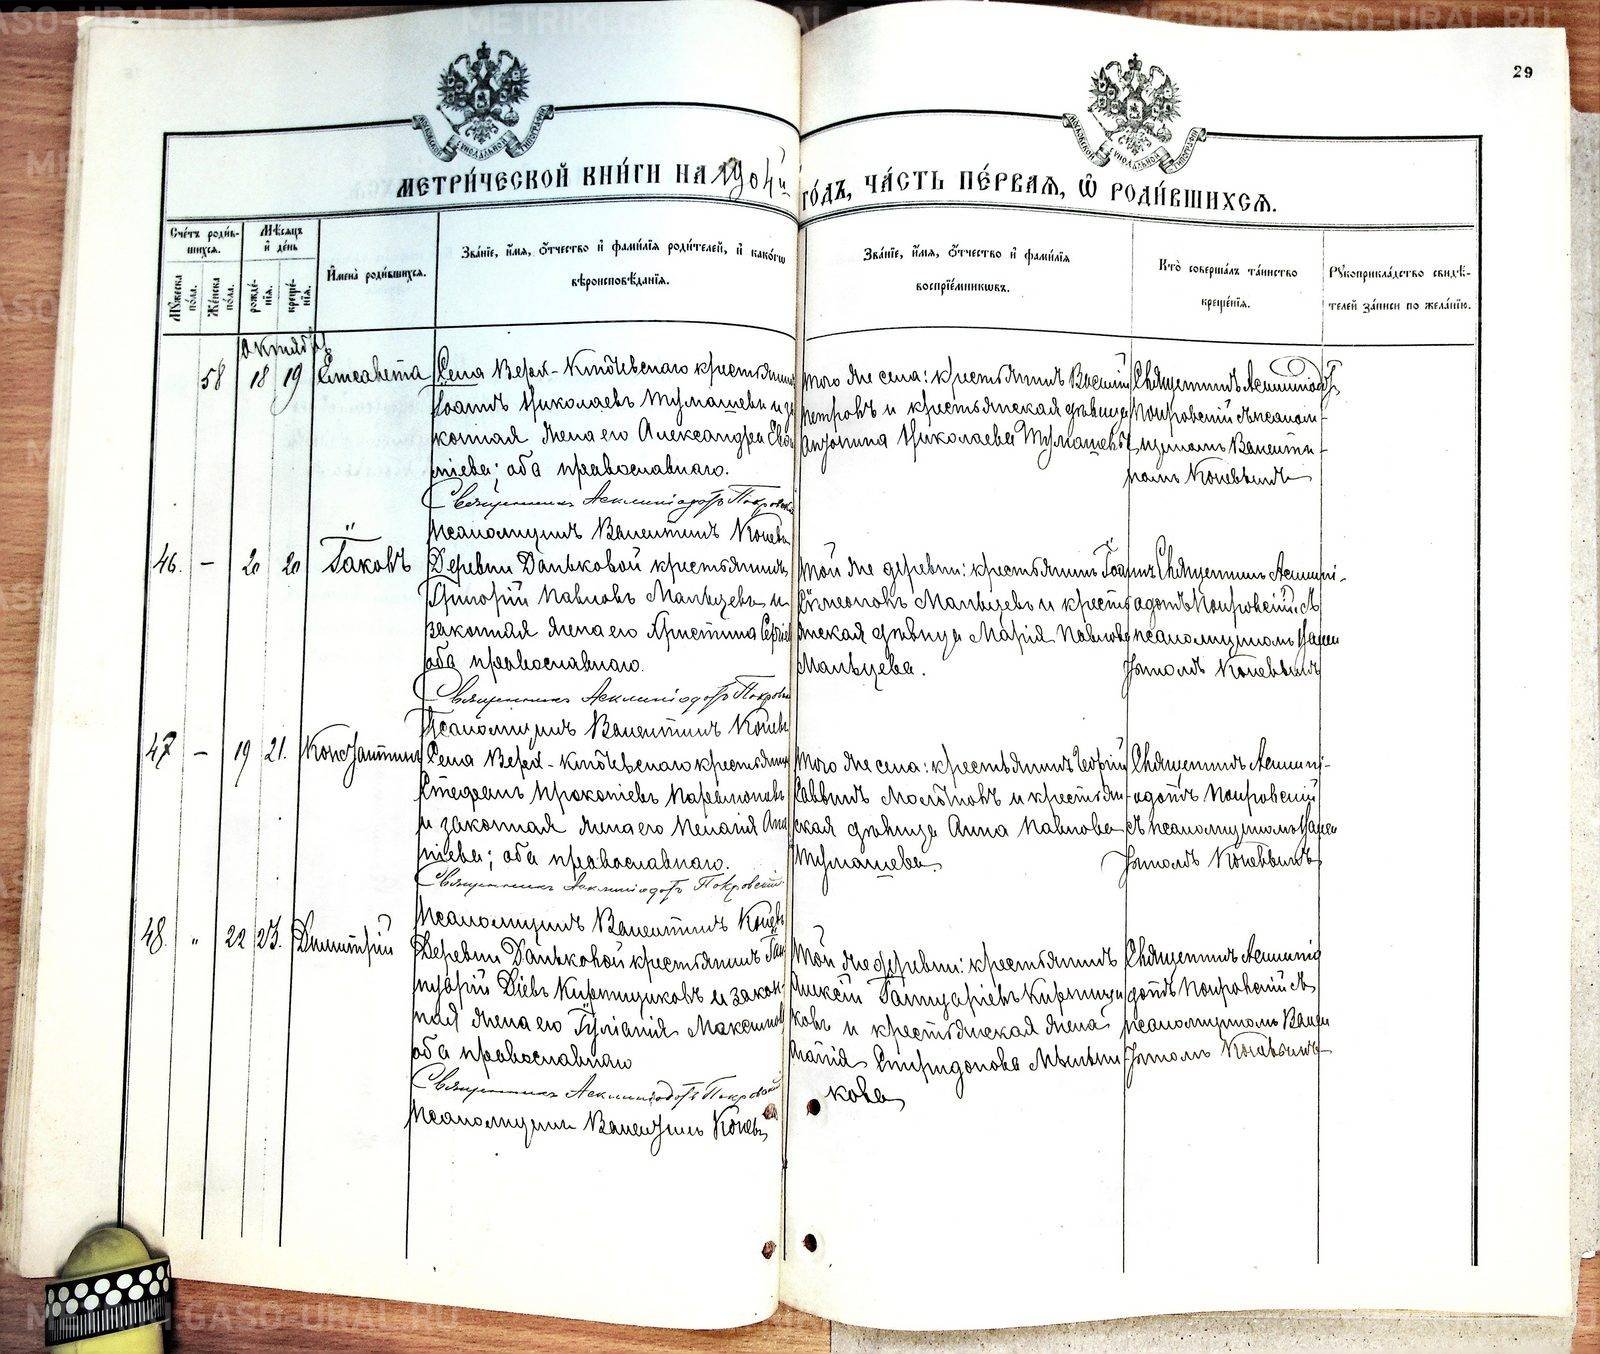 29
МЕТРИ́ЧЕСКОЙ КНИ́ГИ НА 1904й ГО́ДЪ, ЧА́СТЬ ПЕ́РВАЯ, Ѡ҆ РОДИ́ВШИХСЯ.
Сче́тъ роди́в-
шихся.
Му́жеска по́ла.
Же́нска по́ла.
Мѣ́сяцъ
и҆ де́нь
рожде́-
нїя.
креще́-
нїя.
И҆мена̀ роди́вшихся.
Зва́нїе, и҆́мя, ѻ҆́тчество и҆ фами́лїя роди́телей, и҆ како́гѡ
вѣроисповѣ́данїя.
Зва́нїе, и҆́мя, ѻ҆́тчество и҆ фами́лїя
воспрїе́мникѡвъ.
Кто̀ соверша́лъ та́инство
креще́нїя.
Рꙋкоприкла́дство свидѣ́-
телей за́писи по жела́нїю.
Октября
58 18 19 Елисавета
Села Верх-Ключевскаго крестьянинъ
Іоаннъ Николаевъ Тумашевъ и за
конная жена его Александра Евге
ніева; оба православнаго.
Священникъ Асклипіодотъ Покровскій
Псаломщикъ Валентинъ Коневъ
того же села: крестьянинъ Василій
Петровъ и крестьянская дѣвица
Антонина Николаева Тумашева
Священникъ Асклипіодотъ
Покровскій съ псалом-
щикомъ Валенти-
номъ Коневымъ
46. - 20 20 Іаковъ
Деревни Даньковой крестьянинъ
Григорій Павловъ Мальцевъ и
законная жена его Христина Сергіева
оба православнаго.
Священникъ Асклипіодотъ Покровскій
Псаломщикъ Валентинъ Коневъ
той же деревни: крестьянинъ Іоаннъ
Сѵмеоновъ Мальцевъ и крестья
янская дѣвица Марія Павлова
Мальцева.
Священникъ Асклипі-
адотъ Покровскій съ
псаломщикомъ Вален
тиномъ Коневымъ
47 - 19 21. Константинъ
Села Верх-Ключевскаго крестьянинъ
Стефанъ Прокопіевъ Парѳионовъ
и законная жена его Пелагія Анд
ріева; оба православнаго.
Священникъ Асклипіодотъ Покровскій
Псаломщикъ Валентинъ Коневъ
того же села: крестьянинъ Георгій
Саввинъ Молоковъ и крестьян-
ская дѣвица Анна Павлова
Тумашева.
Священникъ Асклипі-
одотъ Покровскій
съ псаломщикомъ Вален
тиномъ Коневымъ
48. " 22 23. Димитрій
Деревни Даньковой крестьянинъ Іан
нуарій Діевъ Кирпищиковъ и закон-
ная жена его Іуліанія Максимова
оба православнаго
Священникъ Асклипіодотъ Покровскій
Псаломщикъ Валентинъ Коневъ
той же деревни: крестьянинъ
Алексій Іаннуаріевъ Кирпищи
ковъ и крестьянская жена
Агапія Спиридонова Мыльни
кова
Священникъ Асклипіо
дотъ Покровскій съ
псаломщикомъ Вален
тиномъ Коневымъ
METRIKI.GASO-URAL.RU